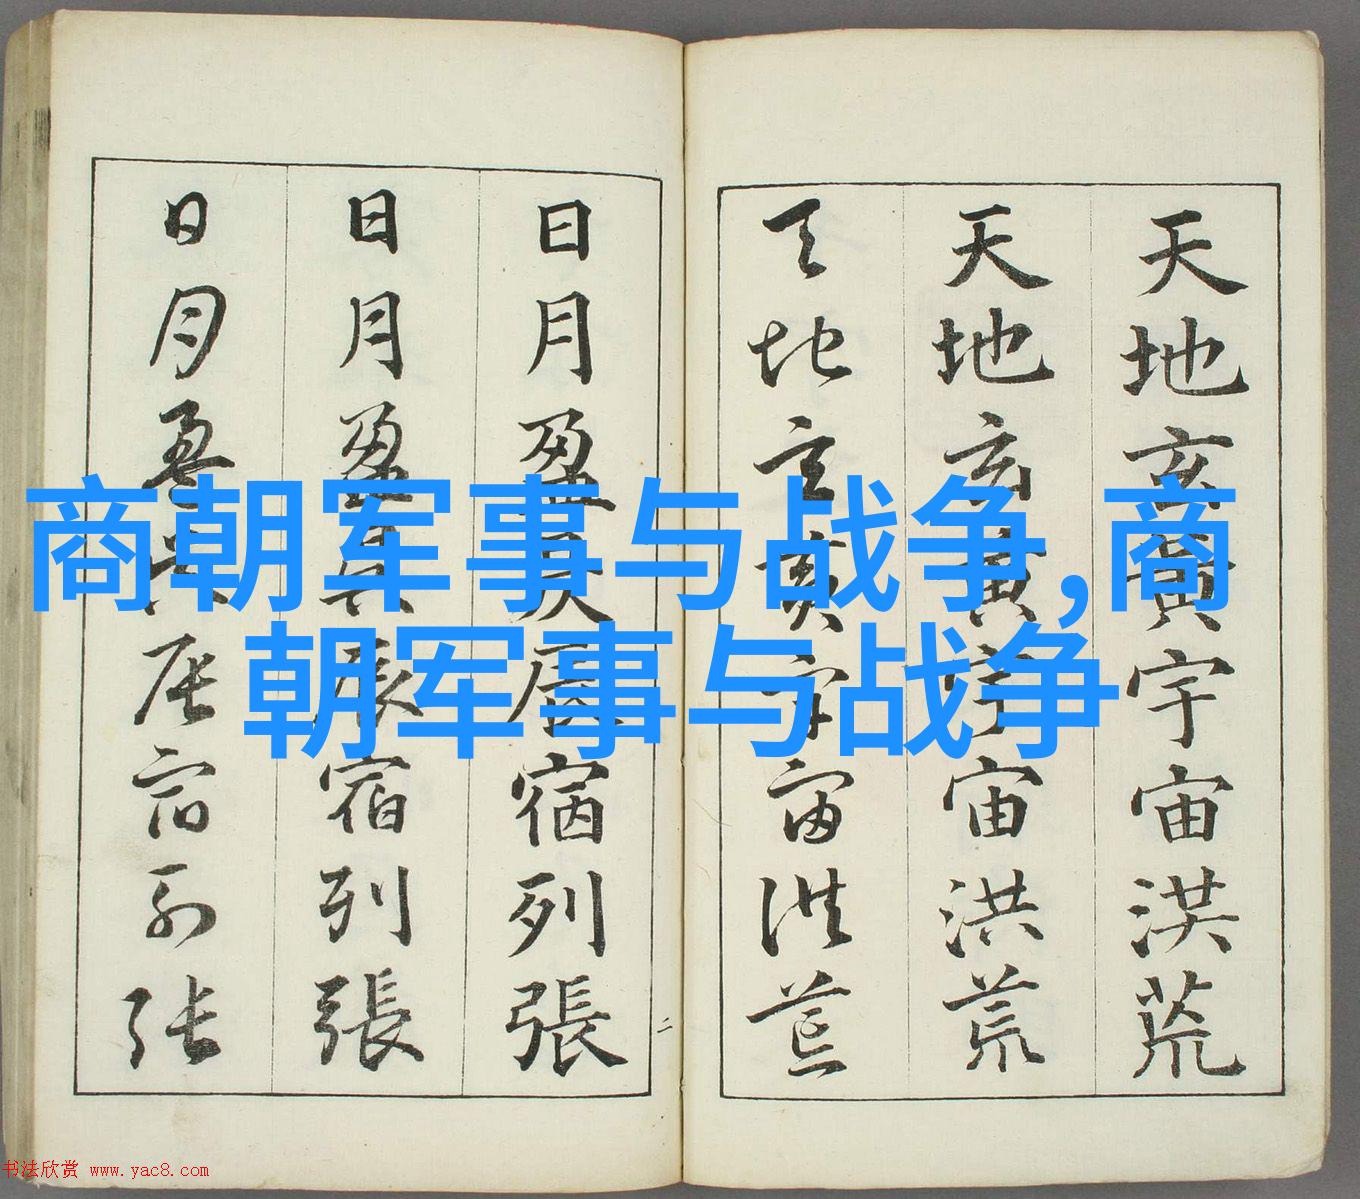 商朝军事与战争,商
朝军事与战争
天地玄黃宇宙洪荒
天地玄黃宇宙洪荒
天地玄黃宇宙洪荒
二
日月盈昃辰宿列張
日月盈昃辰宿列張
日月盈昃辰宿列張
书法欣赏 www.yac8.com